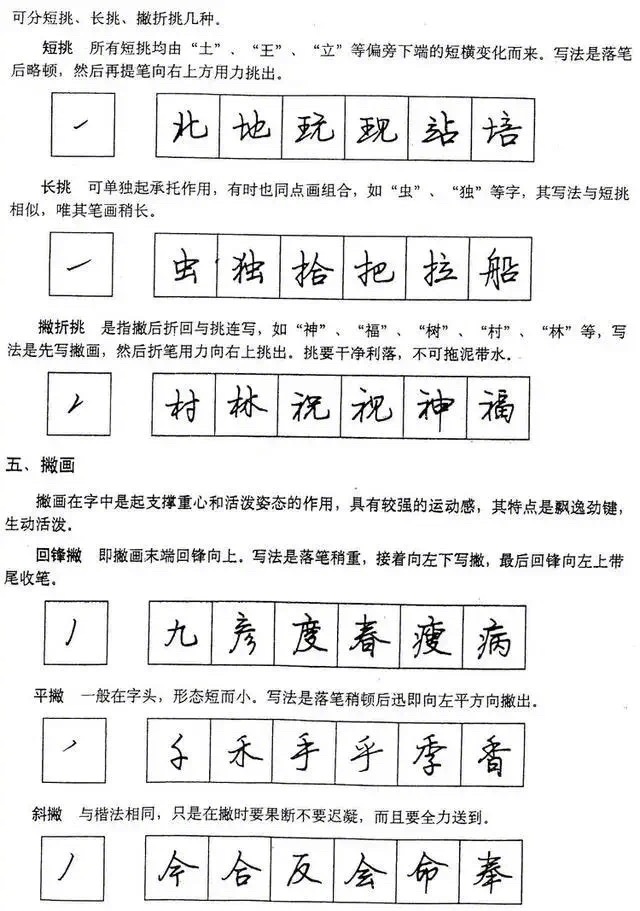 可分短挑、长挑、撇折挑几种。
短挑　所有短挑均由“土”、“王”、“立”等偏旁下端的短横变化而来。写法是落笔
后略顿，然后再提笔向右上方用力挑出。
北 地 玩 现 站 培
长挑　可单独起承托作用，有时也同点画组合，如“虫”、“独”等字，其写法与短挑
相似，唯其笔画稍长。
虫 独 拾 把 拉 船
撇折挑　是指撇后折回与挑连写，如“神”、“福”、“树”、“村”、“林”等，写
法是先写撇画，然后折笔用力向右上挑出。挑要干净利落，不可拖泥带水。
村 林 祝 视 神 福
五、撇画
撇画在字中是起支撑重心和活泼姿态的作用，具有较强的运动感，其特点是飘逸劲键，
生动活泼。
回锋撇　即撇画末端回锋向上。写法是落笔稍重，接着向左下写撇，最后回锋向左上带
尾收笔。
九 彦 度 春 瘦 病
平撇　一般在字头，形态短而小。写法是落笔稍顿后迅即向左平方向撇出。
千 禾 手 乎 季 香
斜撇　与楷法相同，只是在撇时要果断不要迟凝，而且要全力送到。
今 合 反 会 命 奉